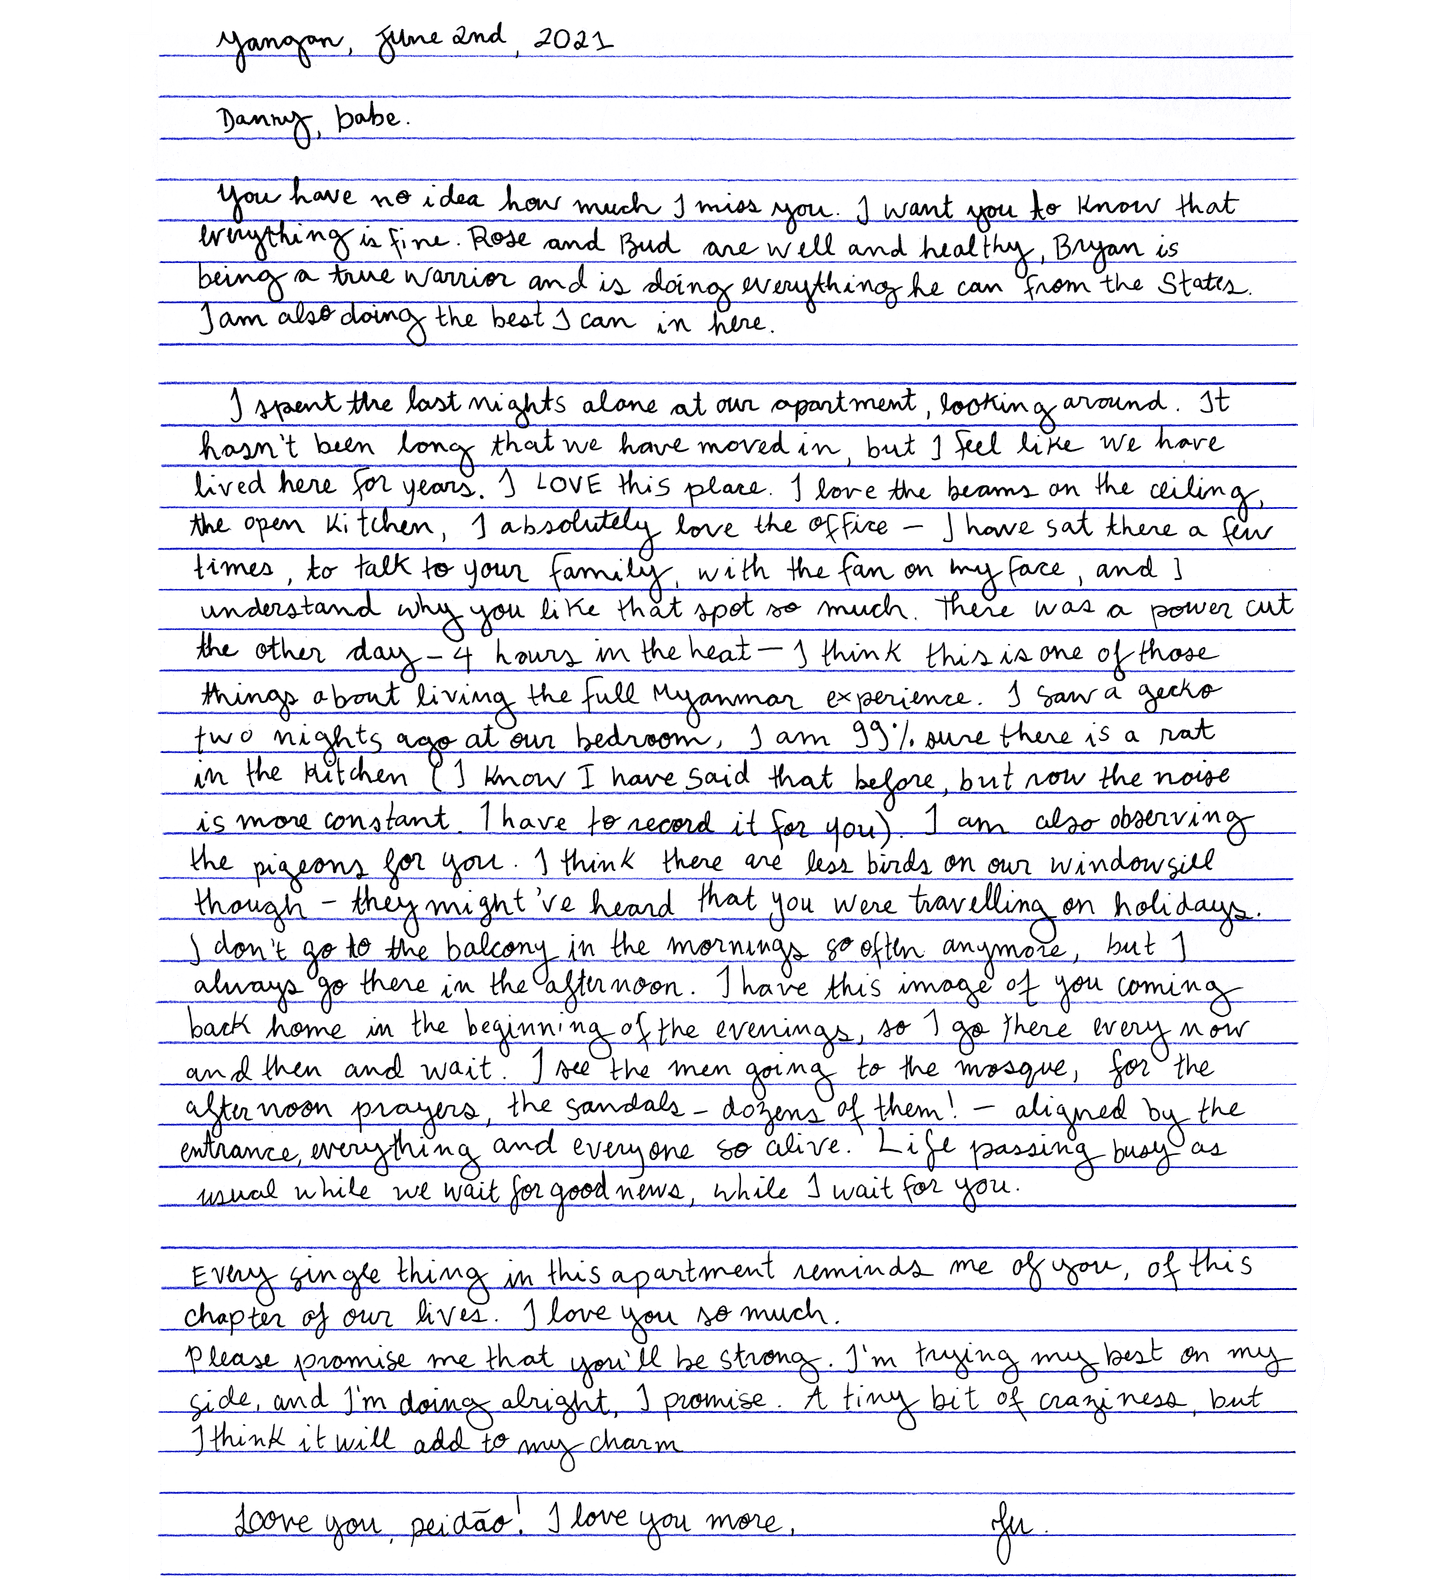 Yangon, June 2nd, 2021
Danny, babe.
You have no idea how much I miss you. I want you to know that
everything is fine. Rose and Bud are well and healthy, Bryan is
being a true warrior and is doing everything he can from the States.
I am also doing the best I can in here.
I spent the last nights alone at our apartment, looking around. It
hasn't been long that we have moved in, but I feel like we have
lived here for years. I LOVE this place. I love the beams on the ceiling,
the open kitchen, I absolutely love the office – I have sat there a few
times, to talk to your family, with the fan on my face, and I
understand why you like that spot so much. There was a power cut
the other day – 4 hours in the heat – I think this is one of those
things about living the full Myanmar experience. I saw a gecko
two nights ago at our bedroom, I am 99% sure there is a rat
in the kitchen (I know I have said that before, but now the noise
is more constant. I have to record it for you). I am also observing
the pigeons for you. I think there are less birds on our windowsill
though – they might've heard that you were travelling on holidays.
I don't go to the balcony in the mornings so often anymore, but I
always go there in the afternoon. I have this image of you coming
back home in the beginning of the evenings, so I go there every now
and then and wait. I see the men going to the mosque, for the
afternoon prayers, the sandals – dozens of them! – aligned by the
entrance, everything and everyone so alive. Life passing busy as
usual while we wait for good news, while I wait for you.
Every single thing in this apartment reminds me of you, of this
chapter of our lives. I love you so much.
Please promise me that you'll be strong. I'm trying my best on my
side, and I'm doing alright, I promise. A tiny bit of craziness, but
I think it will add to my charm
Loove you, peidão! I love you more, Ju.